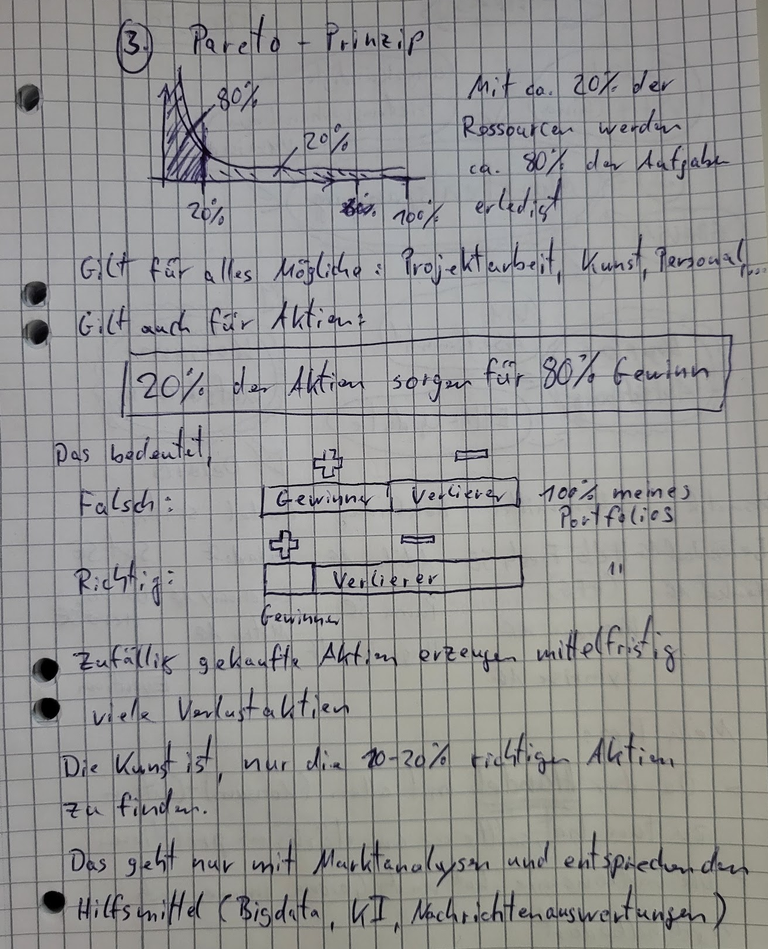 3. Pareto - Prinzip
80%
20%
20%
100%
Mit ca. 20% der
Ressourcen werden
ca. 80% der Aufgaben
erledigt
Gilt für alles Mögliche: Projektarbeit, Kunst, Personal,...
Gilt auch für Aktien:
20% der Aktien sorgen für 80% Gewinn
Das bedeutet,
+ −
Falsch: Gewinner Verlierer 100% meines
Portfolios
+ −
Richtig: Verlierer "
Gewinner
Zufällig gekaufte Aktien erzeugen mittelfristig
viele Verlustaktien
Die Kunst ist, nur die 10-20% richtigen Aktien
zu finden.
Das geht nur mit Marktanalysen und entsprechenden
Hilfsmittel (Bigdata, KI, Nachrichtenauswertungen)